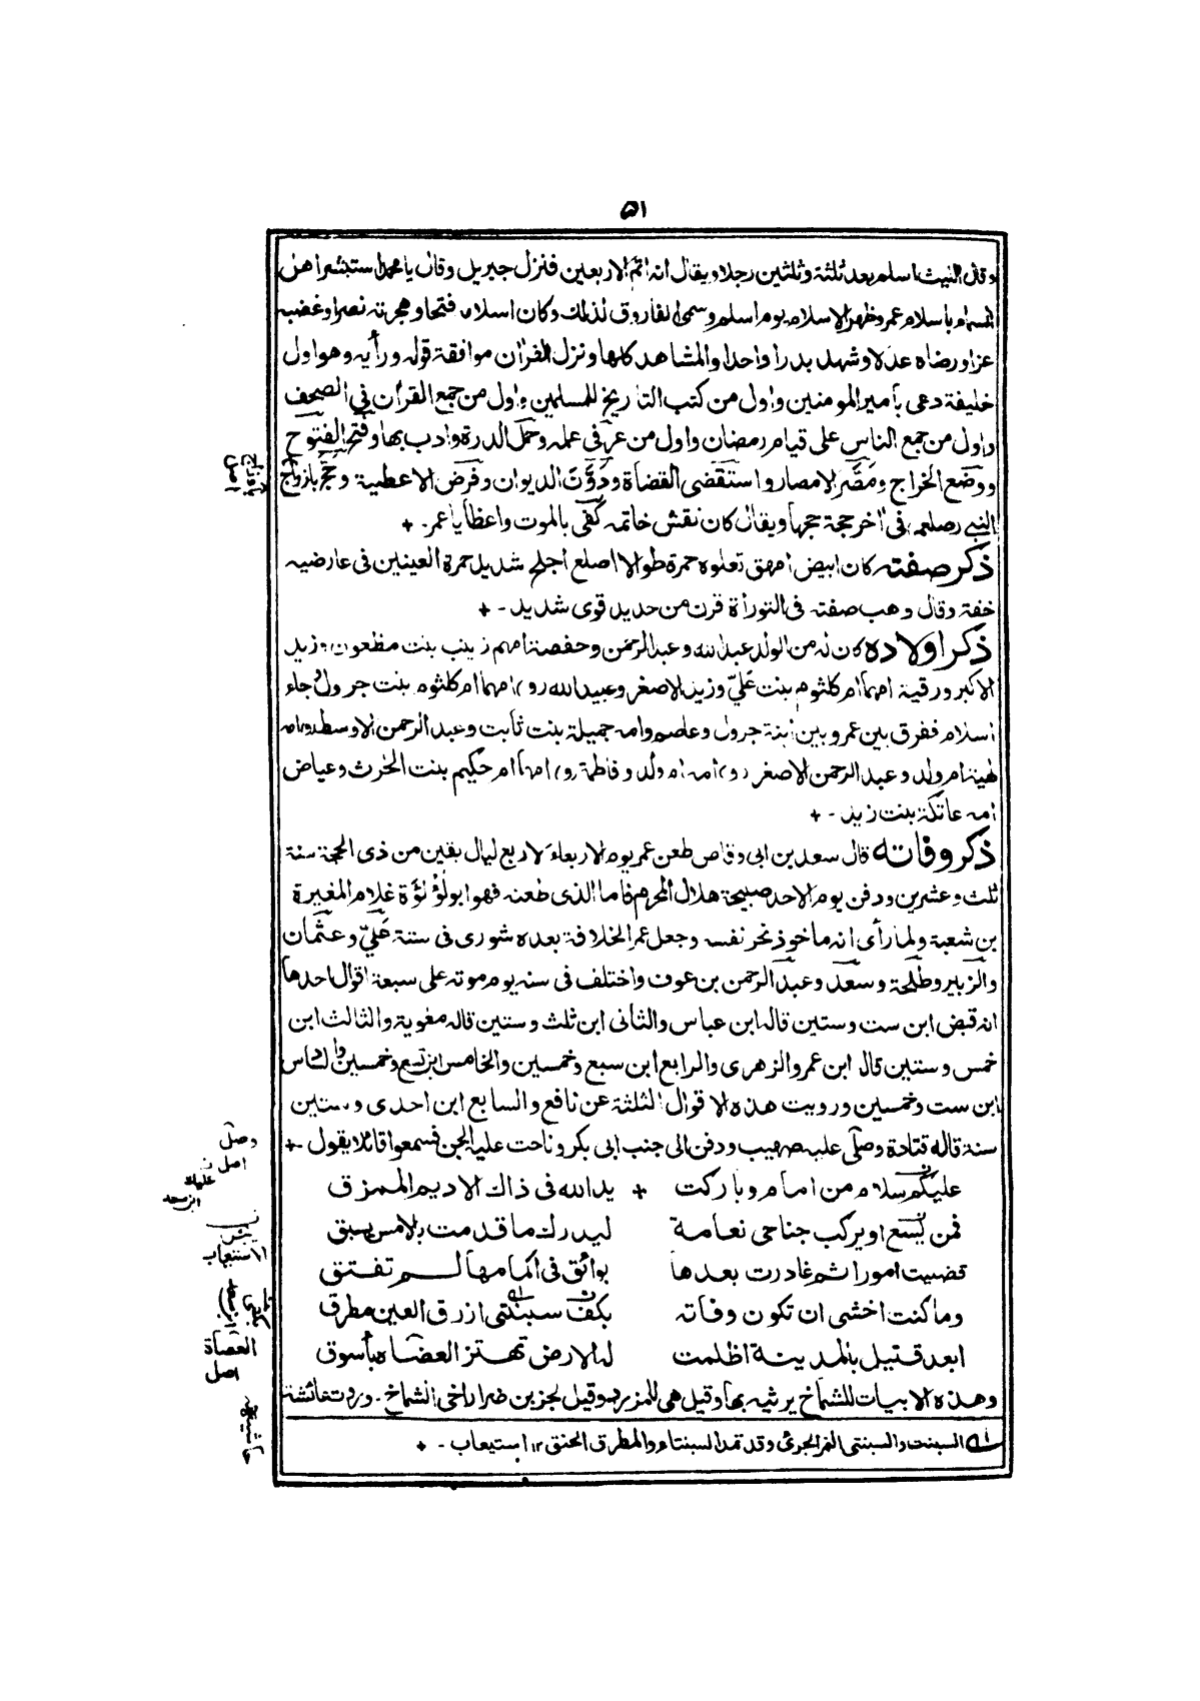 ۵۱
وقال الليث اسلم بعد ثلثة وثلثين رجلا ويقال انه اتم الاربعين فنزل جبريل وقال يا محمد استبشر اهل
السماء باسلام عمر وظهر الاسلام يوم اسلم وسمى الفاروق لذلك وكان اسلامه فتحا وهجرته نصرا وغضبه
عزا ورضاه عدلا وشهد بدرا واحدا والمشاهد كلها ونزل القرآن موافقة قوله ورأيه وهو اول
خليفة دعى بأمير المومنين واول من كتب التاريخ للمسلمين واول من جمع القرآن في الصحف
واول من جمع الناس على قيام رمضان واول من عرّ في عمله وحمل الدرة وادب بها وفتح الفتوح
ووضع الخراج ومصّر الامصار واستقضى القضاة ودوّن الديوان وفرض الاعطية وحجّ بازواج
النبي صلعم في آخر حجة حجها ويقال كان نقش خاتمه كفى بالموت واعظا يا عمر - +
ذكر صفته كان ابيض امهق تعلوه حمرة طوالا اصلع اجلح شديد حمرة العينين فى عارضيه
خفة وقال وهب صفته فى التوراة قرن من حديد قوى شديد - +
ذكر اولاده كان له من الولد عبد الله وعبد الرحمن وحفصة امهم زينب بنت مظعون وزيد
الاكبر ورقية امهما ام كلثوم بنت عليّ وزيد الاصغر وعبيد الله امهما ام كلثوم بنت جرول جاء
اسلام ففرق بين عمر وبين ابنة جرول وعاصم وامه جميلة بنت ثابت وعبد الرحمن الاوسط وامه
لهية ام ولد وعبد الرحمن الاصغر امه ام ولد وفاطمة امها ام حكيم بنت الحرث وعياض
امه عاتكة بنت زيد - +
ذكر وفاته قال سعد بن ابى وقاص طعن عمر يوم الاربعاء لاربع ليال بقين من ذى الحجة سنة
ثلث وعشرين ودفن يوم الاحد صبيحة هلال المحرم فاما الذى طعنه فهو ابو لؤلؤة غلام المغيرة
بن شعبة ولما رأى انه ماخوذ نحر نفسه وجعل عمر الخلافة بعده شورى فى ستة عليّ وعثمان
والزبير وطلحة وسعد وعبد الرحمن بن عوف واختلف فى سنه يوم موته على سبعة اقوال احدها
انه قبض ابن ست وستين قاله ابن عباس والثانى ابن ثلث وستين قاله معوية والثالث ابن
خمس وستين قال ابن عمر والزهرى والرابع ابن سبع وخمسين والخامس ابن تسع وخمسين والسادس
ابن ست وخمسين ورويت هذه الاقوال الثلثة عن نافع والسابع ابن احدى وستين
سنة قاله قتادة وصلّى عليه صهيب ودفن الى جنب ابى بكر وناحت عليه الجن فسمعوا قائلا يقول - +
عليكم سلام من امام وباركت + يد الله فى ذاك الاديم الممزق
فمن يسع او يركب جناحى نعامة ليدرك ما قدمت بالامس يسبق
قضيت امورا ثم غادرت بعدها بوائق فى اكمامها لم تفتق
وما كنت اخشى ان تكون وفاته بكف سبنتى ازرق العين مطرق
ابعد قتيل بالمدينة اظلمت له الارض تهتز العضاه بأسوق
وهذه الابيات للشماخ يرثيه بها وقيل هى للمزرد وقيل لجز بن ضرار اخى الشماخ - وردت عائشة
السبنت والسبنتى النمر الجرئ وقد تمد السبنتاء والمطرق الحنق ١٢ استيعاب - +
وصلّ
اصل
عليك
ابن سعد
الاستيعاب
العصاة
اصل
حاشيه